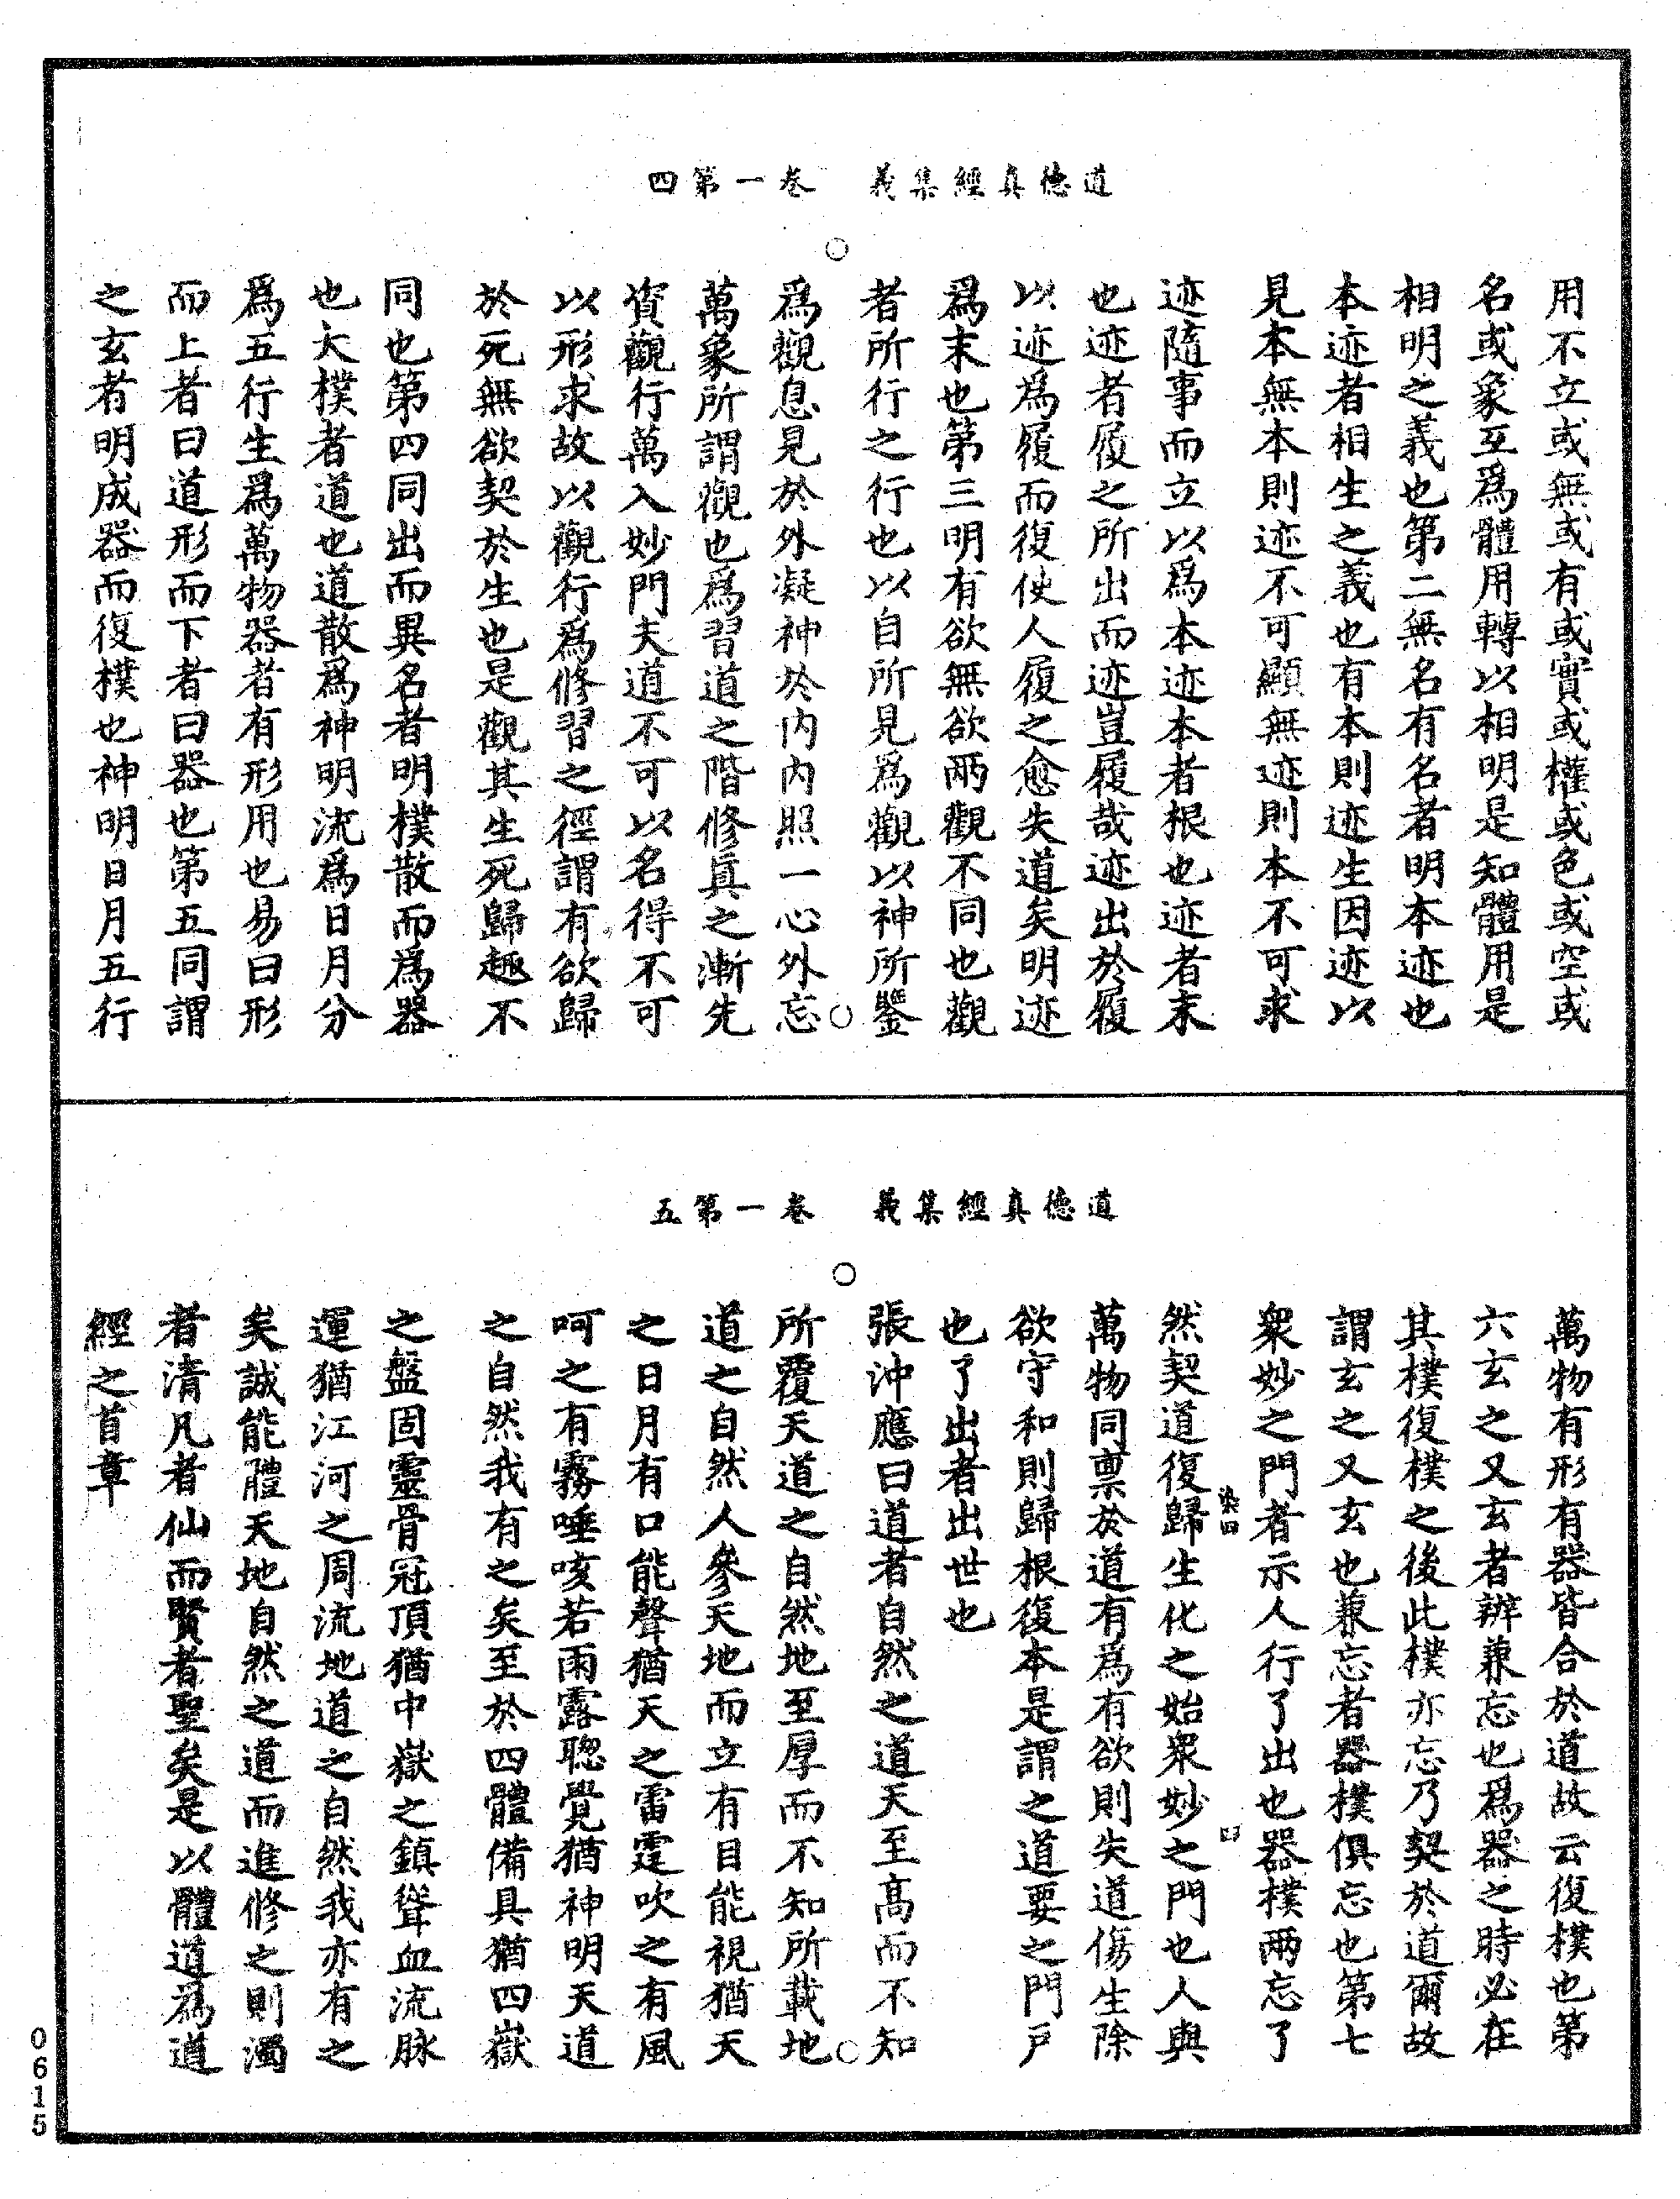 道德真經集義　卷一第四
用不立或無或有或實或權或色或空或
名或象互爲體用轉以相明是知體用是
相明之義也第二無名有名者明本迹也
本迹者相生之義也有本則迹生因迹以
見本無本則迹不可顯無迹則本不可求
迹隨事而立以爲本迹本者根也迹者末
也迹者履之所出而迹豈履哉迹出於履
以迹爲履而復使人履之愈失道矣明迹
爲末也第三明有欲無欲兩觀不同也觀
者所行之行也以自所見爲觀以神所鑒
爲觀息見於外凝神於内内照一心外忘
萬象所謂觀也爲習道之階修真之漸先
資觀行萬入妙門夫道不可以名得不可
以形求故以觀行爲修習之徑謂有欲歸
於死無欲契於生也是觀其生死歸趣不
同也第四同出而異名者明樸散而爲器
也大樸者道也道散爲神明流爲日月分
爲五行生爲萬物器者有形用也易曰形
而上者曰道形而下者曰器也第五同謂
之玄者明成器而復樸也神明日月五行
道德真經集義　卷一第五
萬物有形有器皆合於道故云復樸也第
六玄之又玄者辨兼忘也爲器之時必在
其樸復樸之後此樸亦忘乃契於道爾故
謂玄之又玄也兼忘者器樸俱忘也第七
衆妙之門者示人行了出也器樸兩忘了
染四
曰
然契道復歸生化之始衆妙之門也人與
萬物同禀於道有爲有欲則失道傷生除
欲守和則歸根復本是謂之道要之門戶
也了出者出世也
張沖應曰道者自然之道天至高而不知
所覆天道之自然地至厚而不知所載地
道之自然人參天地而立有目能視猶天
之日月有口能聲猶天之雷霆吹之有風
呵之有霧唾咳若雨露聰覺猶神明天道
之自然我有之矣至於四體備具猶四嶽
之盤固靈骨冠頂猶中嶽之鎮聳血流脉
運猶江河之周流地道之自然我亦有之
矣誠能體天地自然之道而進修之則濁
者清凡者仙而賢者聖矣是以體道爲道
經之首章
0615